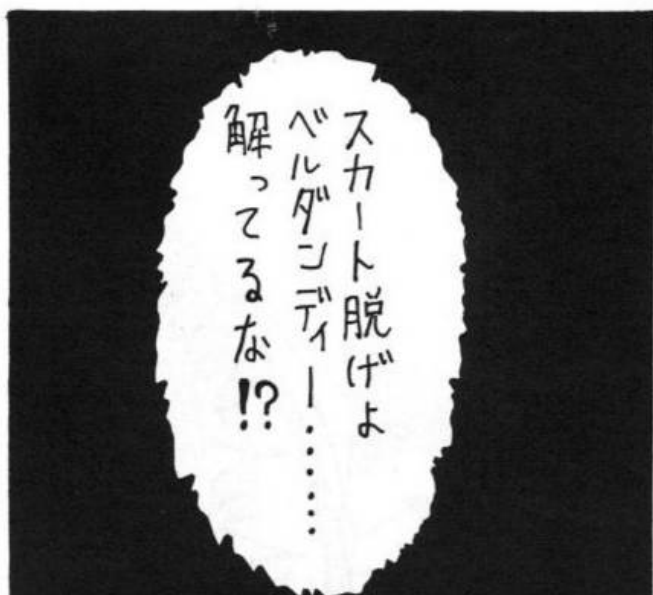 スカート脱げよ
ベルダンディー……
解ってるな!?